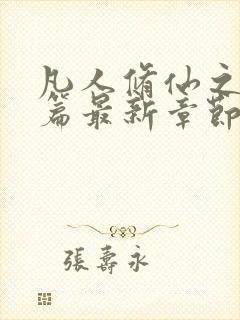 凡人脩仙之
篇最新章節
張壽永